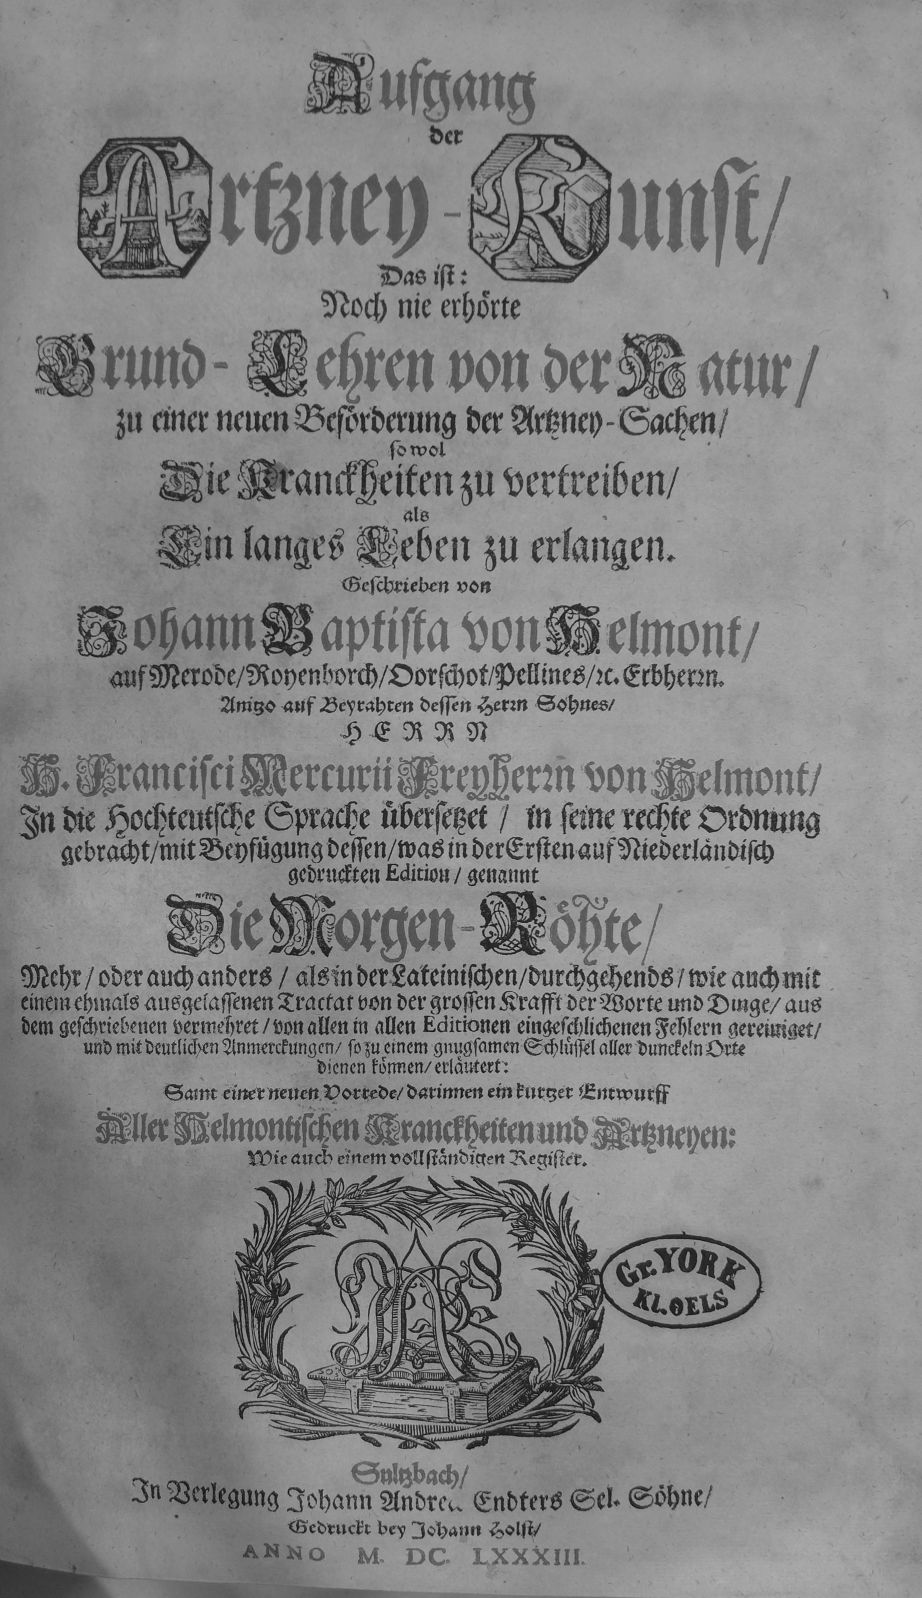 Aufgang
der
Artzney-Kunst/
Das ist:
Noch nie erhörte
Grund-Lehren von der Natur/
zu einer neuen Beförderung der Artzney-Sachen/
so wol
Die Kranckheiten zu vertreiben/
als
Ein langes Leben zu erlangen.
Geschrieben von
Johann Baptista von Helmont/
auf Merode/Royenborch/Oorschot/Pellines/ꝛc. Erbherrn.
Anitzo auf Beyrahten dessen Herrn Sohnes/
HERRN
H. Francisci Mercurii Freyherrn von Helmont/
In die Hochteutsche Sprache übersetzet / in seine rechte Ordnung
gebracht/mit Beyfügung dessen/was in der Ersten auf Niederländisch
gedruckten Edition/ genannt
Die Morgen-Röhte/
Mehr/ oder auch anders/ als in der Lateinischen/durchgehends/ wie auch mit
einem ehmals ausgelassenen Tractat von der grossen Krafft der Worte und Dinge/ aus
dem geschriebenen vermehret/ von allen in allen Editionen eingeschlichenen Fehlern gereiniget/
und mit deutlichen Anmerckungen/ so zu einem gnugsamen Schlüssel aller dunckeln Orte
dienen können/ erläutert:
Samt einer neuen Vorrede/ darinnen ein kurtzer Entwurff
Aller Helmontischen Kranckheiten und Artzneyen:
Wie auch einem vollständigen Register.
Gr. YORK
KL. OELS
Sultzbach/
In Verlegung Johann Andreæ Endters Sel. Söhne/
Gedruckt bey Johann Holst/
ANNO M. DC. LXXXIII.